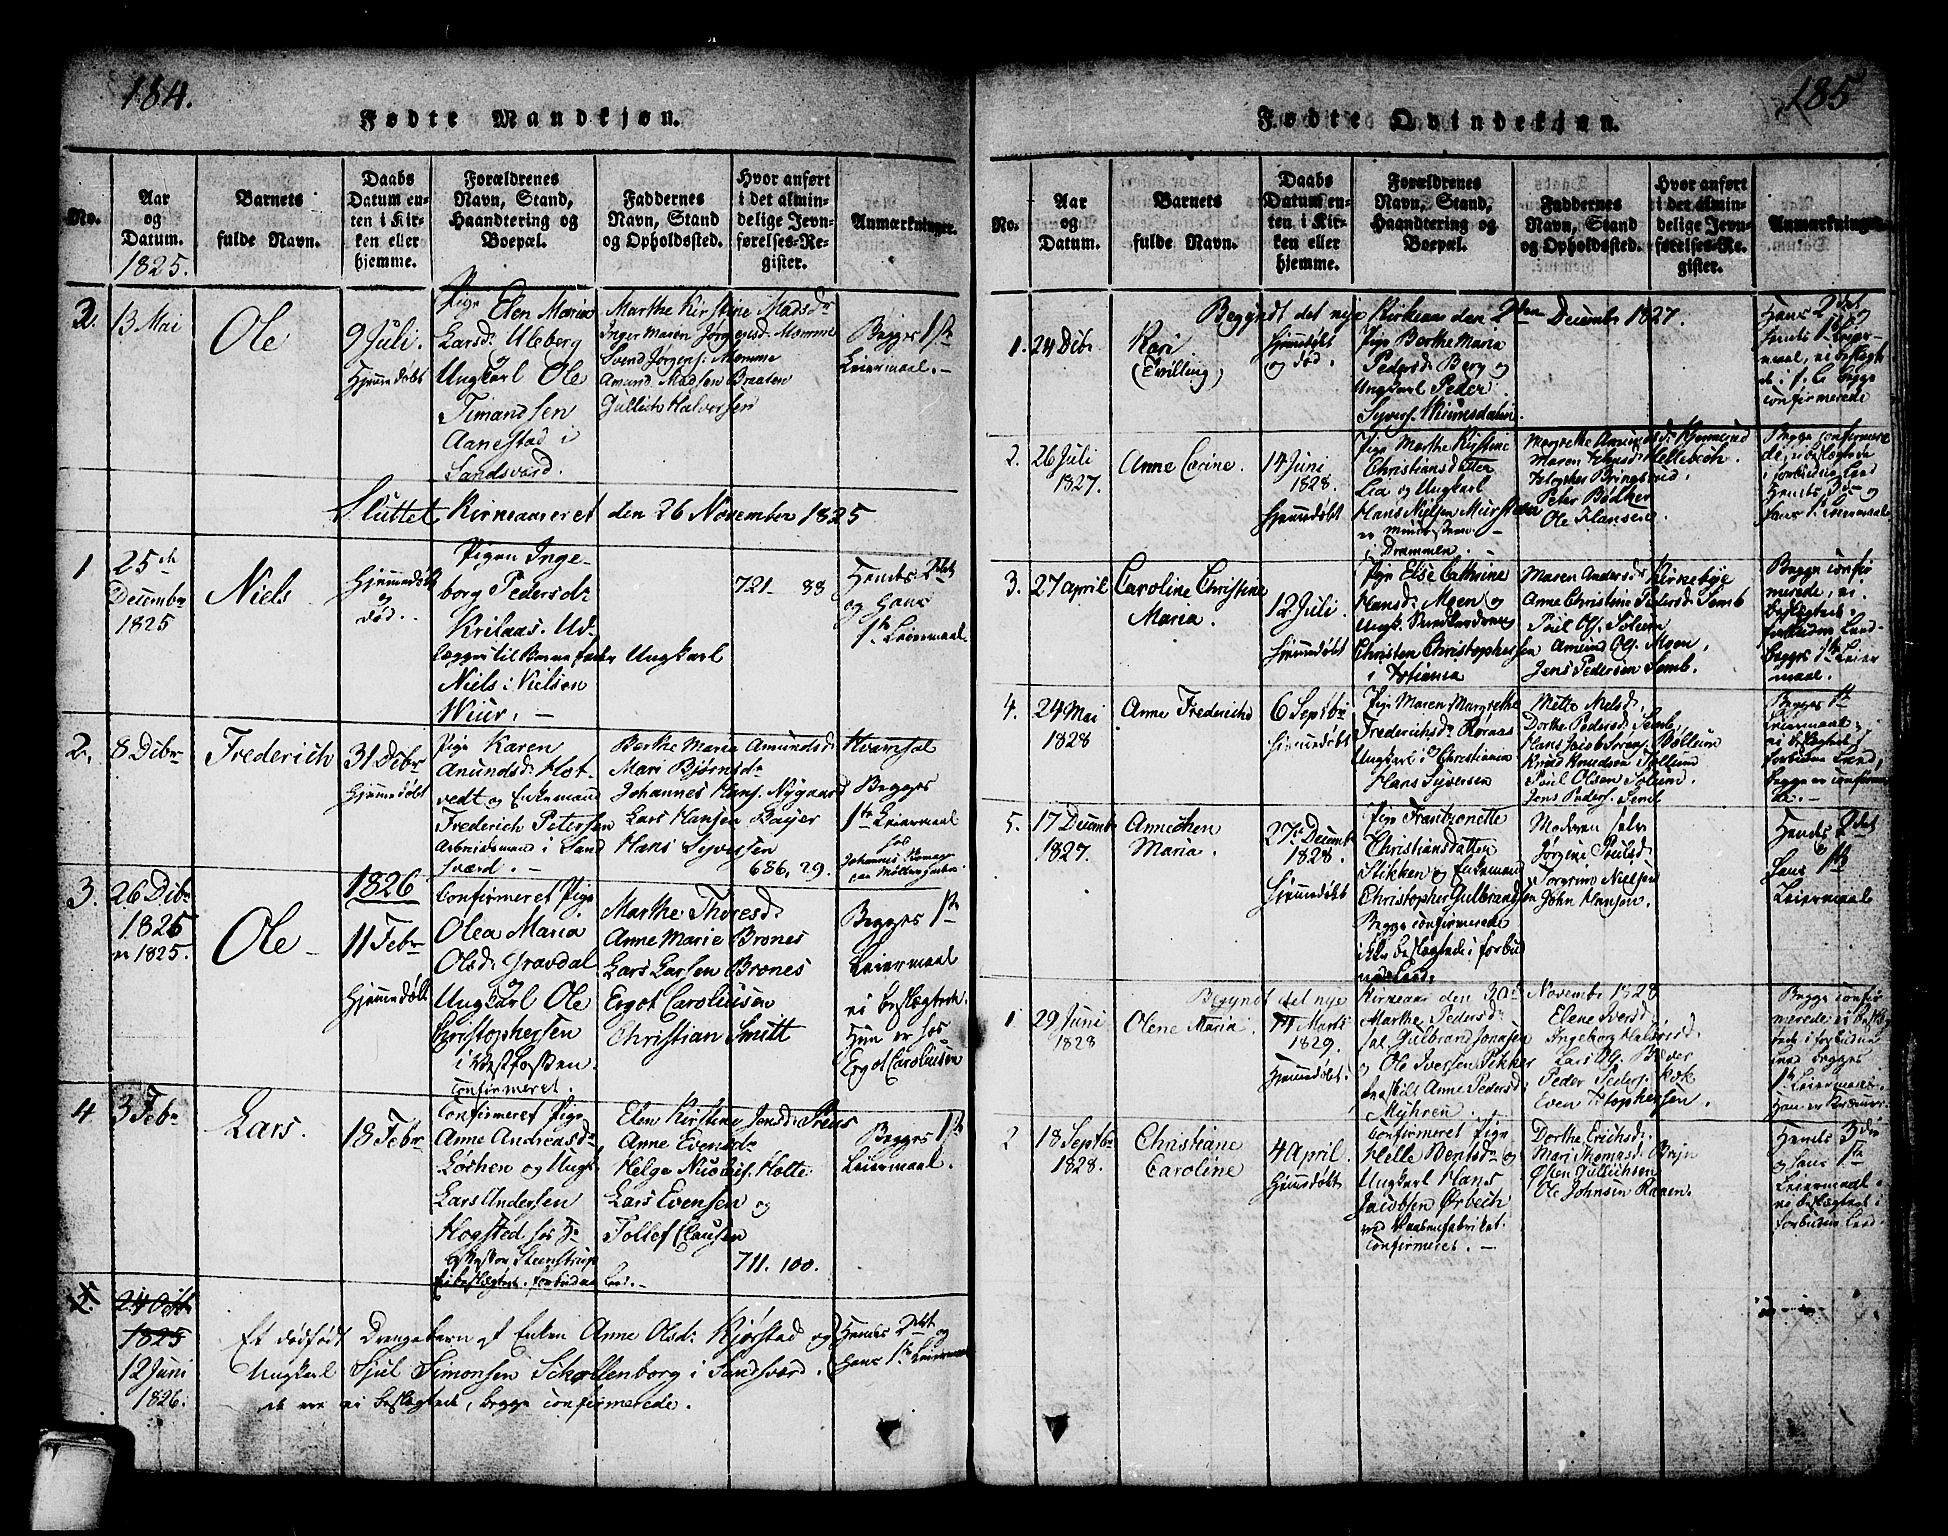 184.
Fødte Mandkjøn.
No.
Aar
og
Datum.
1825.
Barnets
fulde Navn.
Daabs
Datum en-
ten i Kir-
ken eller
hjemme.
Forældrenes
Navn, Stand,
Haandtering og
Boepæl.
Faddernes
Navn, Stand
og Opholdssted.
Hvor anført
i det almin-
delige Jevn-
førelses-Re-
gister.
Anmærkninger.
2.
13 Mai
Ole
9 Juli.
Hjemmedøbt
Pige Elen Maria
Larsd: Uleberg
og
Ungkarl Ole
Simandsen
Aanestad i
Sandsværd.
Marthe Kirstine Madsdr
Inger Maren Jørgensd: Momme
Svend Jørgens: Momme
Amund Madsen Braaten
Gullich Halvorsen
Begges 1ste
Leiermaal. -
Sluttet Kirkeaaret den 26 November 1825
1
25de
December
1825
Niels
Hjemmedøbt
og
død.
Pigen Inge-
borg Pedersdr
Ud-
lægger til Barnefader Ungkarl
Niels Nielsen
721 - 88
Hendes 2det
og Hans
1ste Leiermaal.
2.
8 Dcbr
Frederich
31 Dcbr
Hjemmedøbt
Pige Karen
Anundsdr Hot-
vedt og Enkemand
Frederich Petersen
Arbeidsmand i Sand
sværd. -
Berthe Maria Amundsd:
Mari Bjørnsdr
Johannes Hans: Nygaard
Lars Hansen Bayer
Hans Syversen
686, 29.
Begges
1ste Leiermaal
hos
Johannes
3.
26 Dcbr
1825
Ole
1826
11 Febr
Hjemmedøbt
Confirmeret Pige
Olea Maria
Olsdr Gravdal
og
Ungkarl Ole
Christophersen
i Vestfossen
confirmeret.
Marthe Thoresd:
Anne Marie Brones
Lars Larsen Brones
Ergot Carolussen
Christian Smitt
Begges 1ste
Leiermaal
ei beslægtede.
Hun er hos
Ergot Carolussen
4
3 Febr
Lars.
18 Febr
Confirmeret Pige
Anne Andreasdr
og Ungk:
Lars Andersen
Hogsted hos
ei beslægtede i forbudne Led. -
Elen Kirstine Jensd:
Anne Evensdr
Helge Holte
Lars Evensen og
Tollef Clausen
711. 100.
Begges 1ste
Leiermaal.
5.
24 Octbr
1825
12 Juni
1826.
Et dødfødt Drengebarn af Enken Anne Olsd: Kjørstad og
Ungkarl Sjul Simonsen Schollenborg i Sandsværd.
de ere ei beslægtede, begge confirmerede.
Hendes 2det og
Hans 1ste Leiermaal
185
Fødte Qvindekjøn.
No.
Aar
og
Datum.
Barnets
fulde Navn.
Daabs
Datum en-
ten i Kir-
ken eller
hjemme.
Forældrenes
Navn, Stand,
Haandtering og
Boepæl.
Faddernes
Navn, Stand
og Opholdssted.
Hvor anført
i det almin-
delige Jevn-
førelses-Re-
gister.
Anmærkninger.
Begyndt det nye Kirkeaar den 2den December 1827.
1.
24 Dcbr
Kari
(Tvilling)
Hjemmedøbt
og død.
Pige Berthe Maria
Pedersdr Berg og
Ungkarl Peder
Hans 2det
Hends 1ste Leier-
maal, ei beslægte
de i f. L. begge
confirmerede
2.
26 Juli
1827.
Anne Cecine.
14 Juni
1828.
Hjemmedøbt
Pige Marthe Kirstine
Christiansdatter
Lia og Ungkarl
Hans Nielsen
i
Drammen. -
Peter Bødker
Ole Hansen
Begge confirmere
de, ubeslægtede
i forbudne Leed
Hends 3die og
Hans 1ste Leiermaal
3.
27 april
Caroline Christine
Maria.
12 Juli
Hjemmedøbt
Pige Else Cathrine
Hansdr Moen og
Christen Christophersen
i Xstiania
Maren Andersd: Kirkebye
Anne Christine Pedersd: Semb
Poul Ols: Solum
Amund Ols: Moen,
Jens Pedersen Semb.
Begge confir
merede, ei
beslægtede i
forbudne Leed-
begges 1ste Leier
maal.
4.
24 Mai
1828
Anne Frederiche
6 Septbr
Hjemmedøbt
Pige Maren Margrethe
Frederichsdr
Ungkarl i Christiania
Hans Syversen
Mette Nielsd:
Dorthe Pedersd: Semb,
Hans Jacob Vollum
Knud Knudsen Sollum
Poul Olsen Solum.
Jens Peders: Semb
Begges 1ste
Leiermaal,
ei beslægtede
forbudne Leed,
begge er confirmere
de. -
5.
17 Decembr
1827.
Annechen
Maria.
27de Decembr
1828.
Hjemmedøbt
Pige Frantzonette
Christiansdatter
Stikken og Enkemand
Christopher Gulbrandsen
Begge confirmerede
ikke beslægtede i forbud
ne Leed.
Moderen selv
Jørgine Poulsd:
Torgrim Nielsen
John Hansen.
Hendes 2det
Hans 1ste
Leiermaal
Begyndt det nye Kirkeaar den 30te November 1828
1
29 Juni
1828
Olene Maria.
Marts
1829.
Hjemmedøbt.
Marthe Pedersdr
Gulbrand Jonasen
og Ole Iversen Pikker
Anne Pedersdr
Myhren.
Elene Iversd:
Ingeborg Halvorsd:
Lars Ols:
Peder Peders: Kok
Even Xstophersen.
Begge confir
merede ei beslæg
tede i forbudne
Leed begges
1ste Leiermaal.
2
18 Septbr
1828.
Christiane
Caroline
4 April.
Hjemmedøbt
Confirmeret Pige
Helle Berntsdr og
Ungkarl Hans
Jacobsen Ørbech
ved Vaabenfabriket.
confirmeret. -
Dorthe Erichsd:
Mari Thomasd:
Osten Gullichsen
Ole Johnsen
Hends 3die
og Hans 1ste
Leiermaal
ei beslægtede i
forbudne Leed.